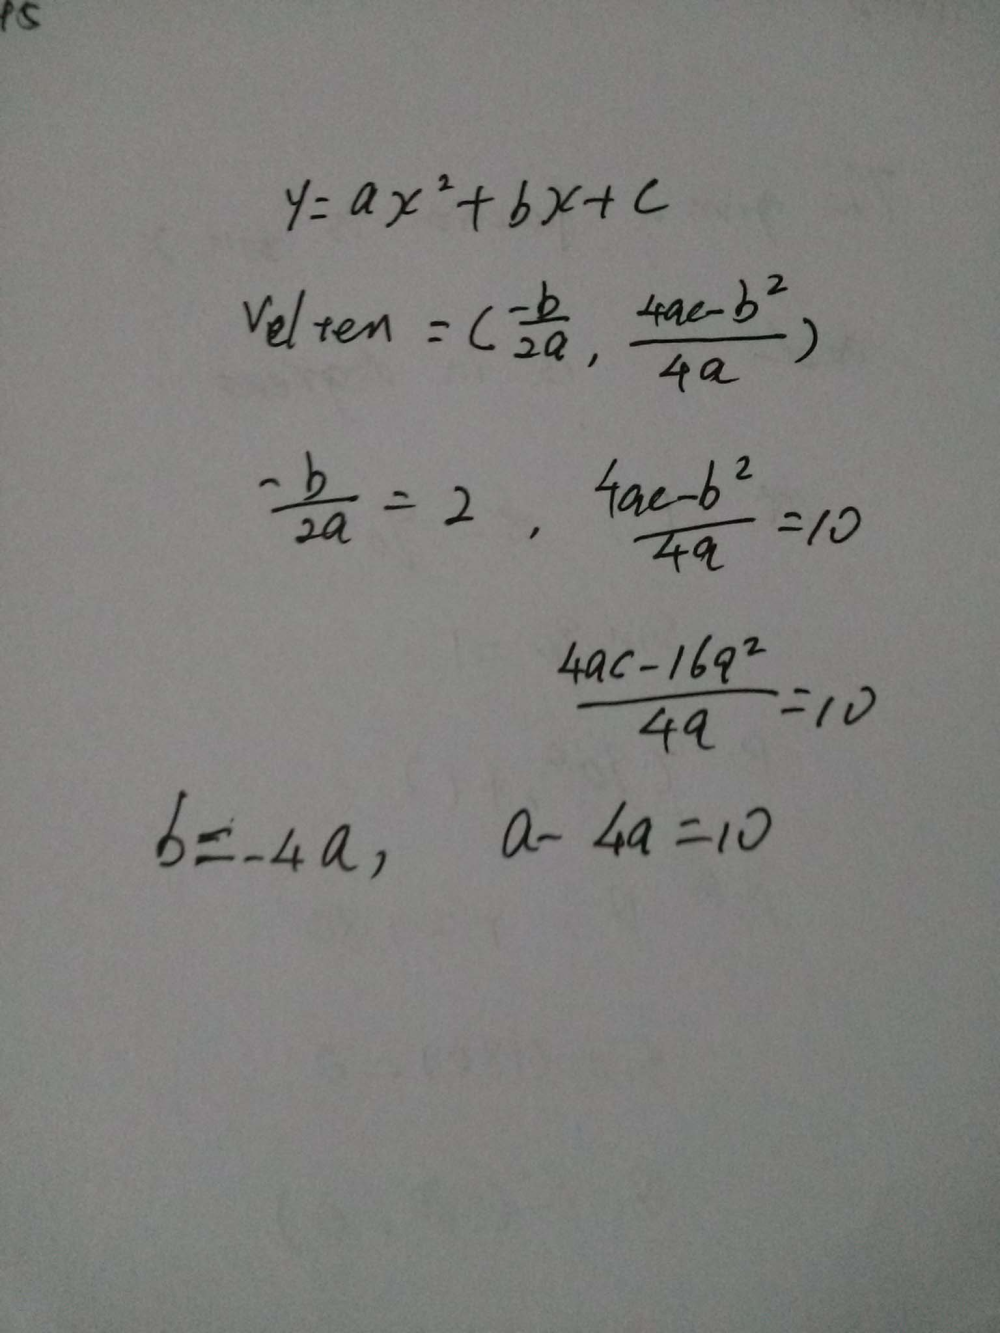 PS
y = ax² + bx + c
Velten = (-b/2a, 4ac-b²/4a)
-b/2a = 2, 4ac-b²/4a = 10
4ac-16a²/4a = 10
b = -4a, a - 4a = 10